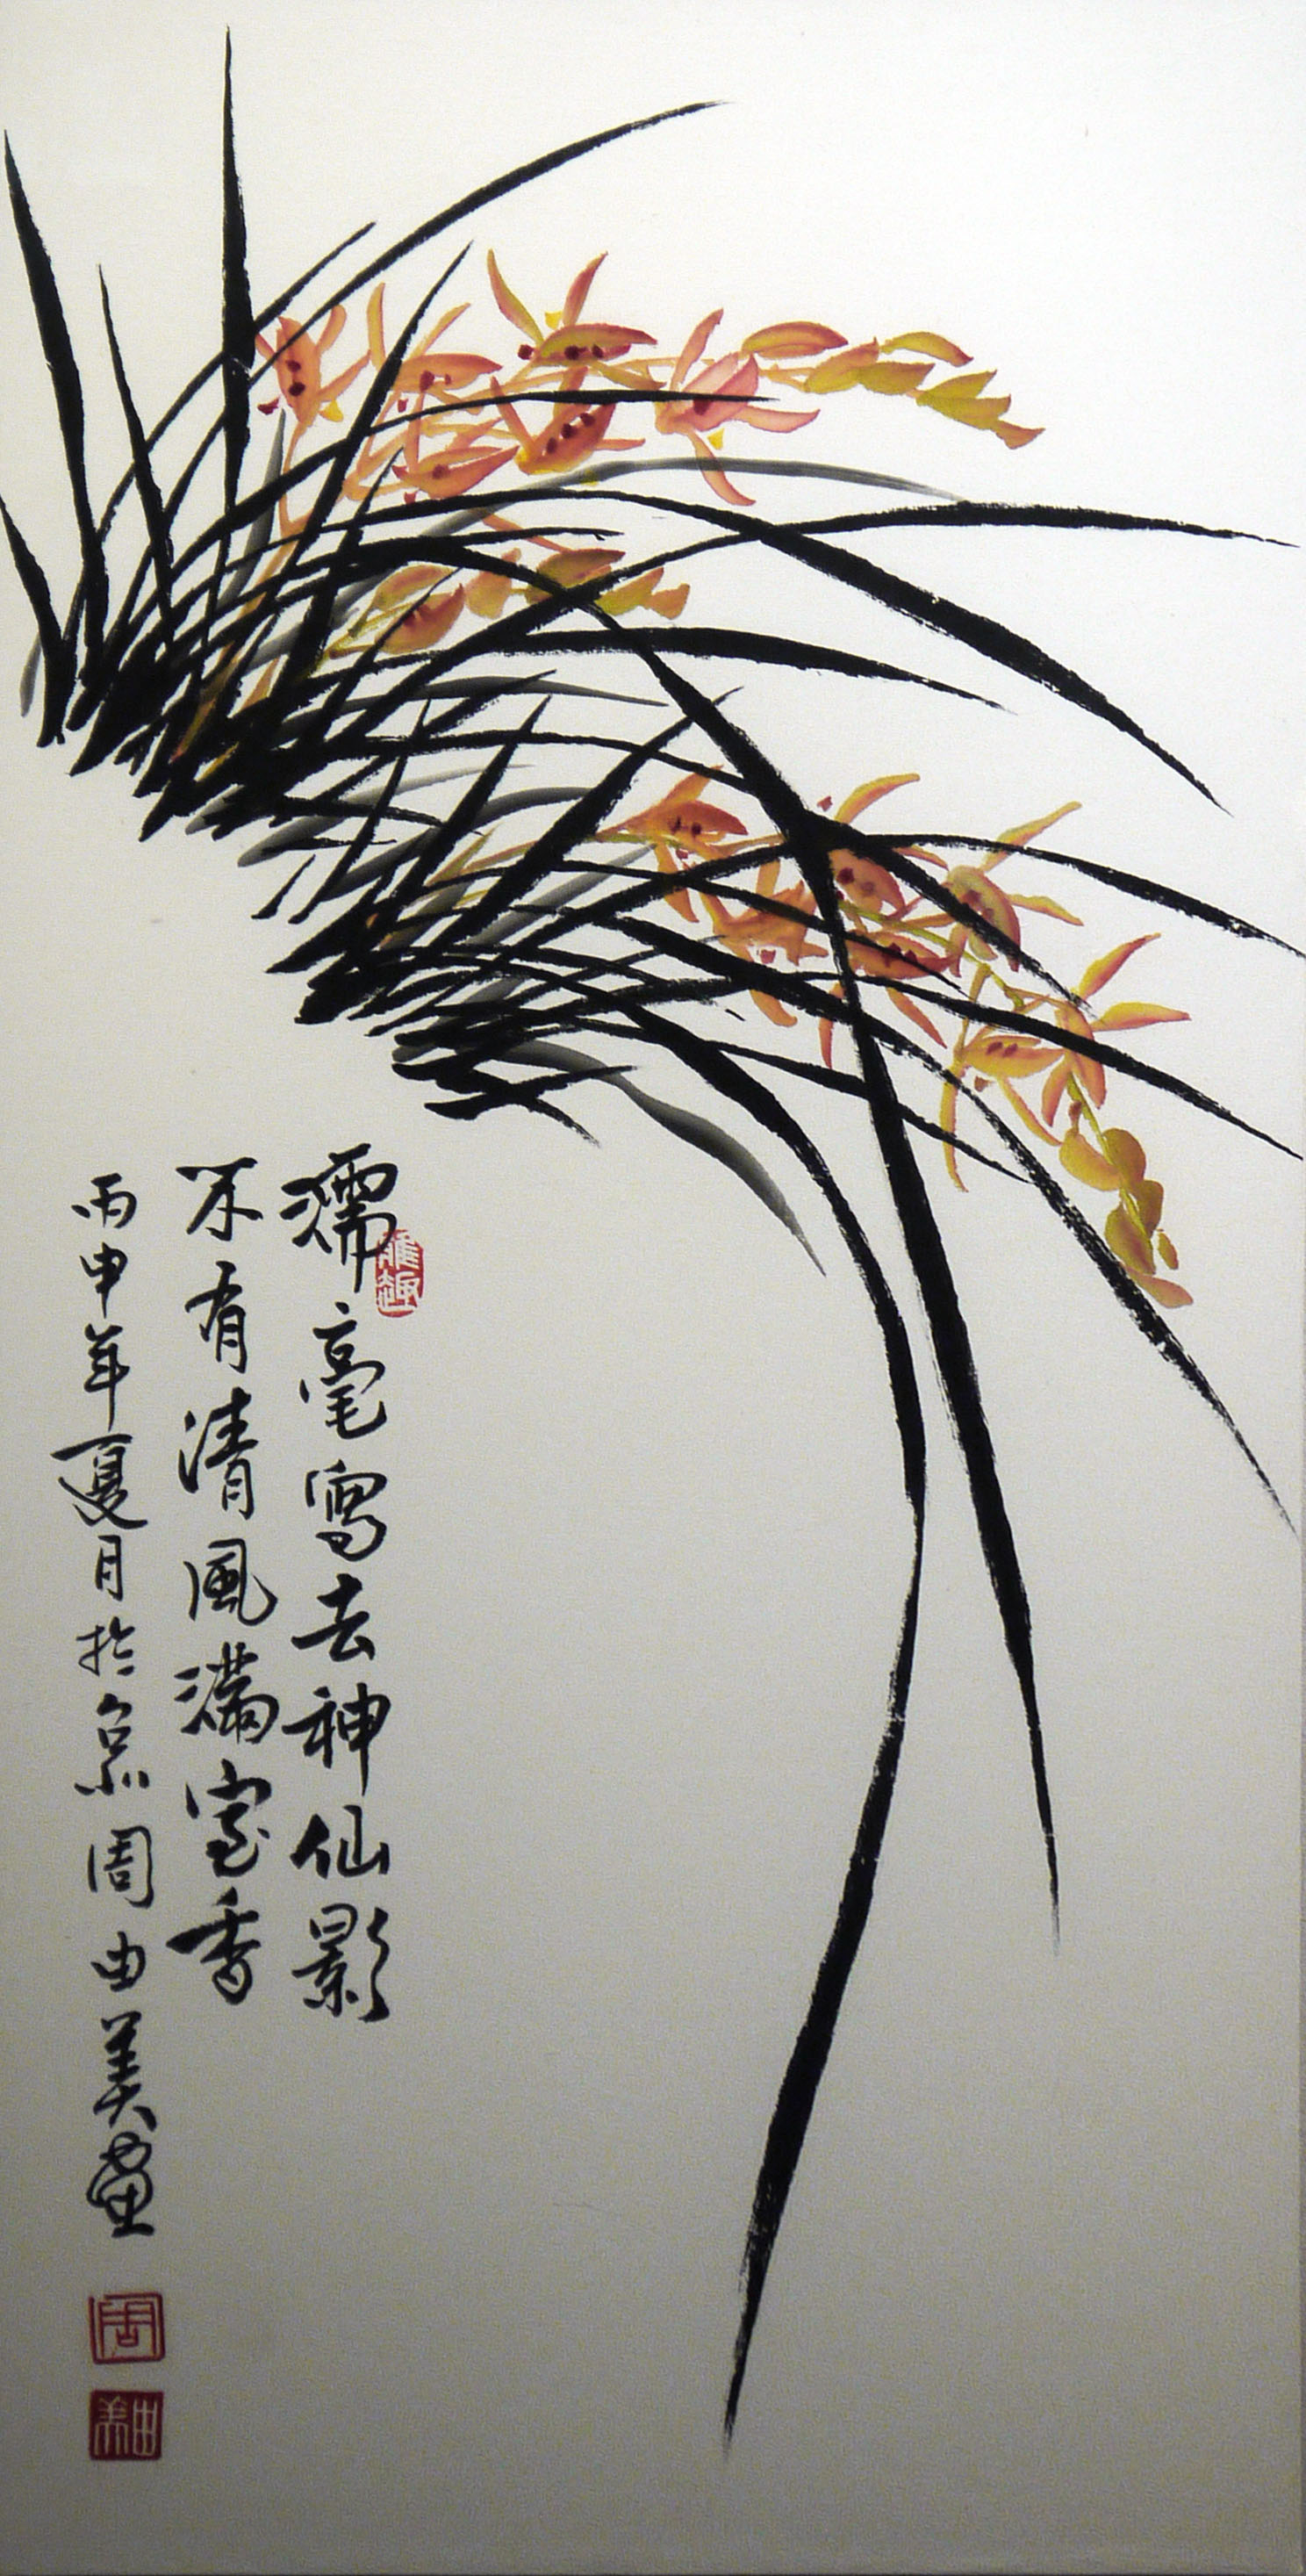 雅趣
濡毫寫去神仙影
有清風滿室香
丙申年夏月於京周由美畫
周
由美